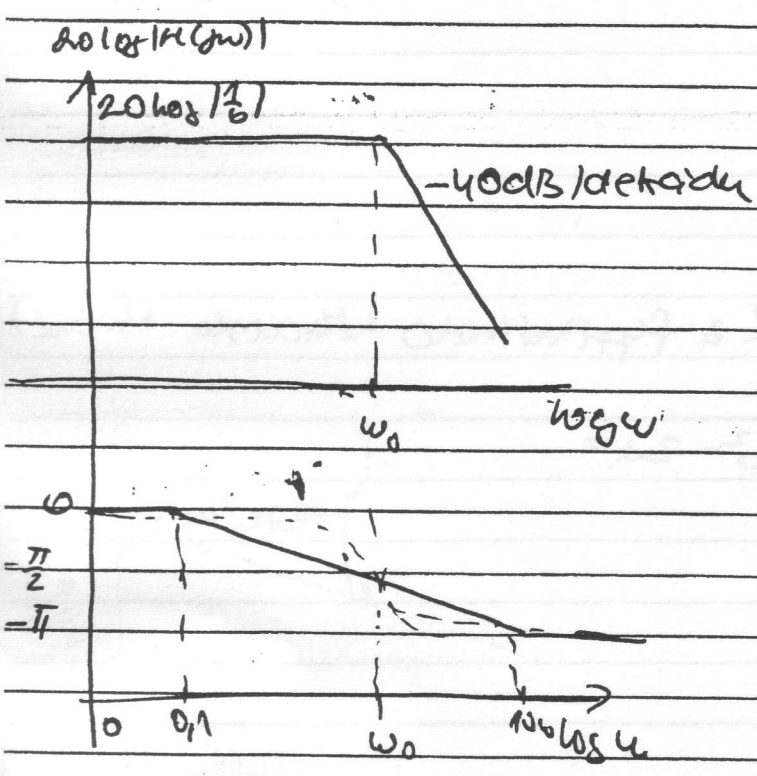 20log|H(jω)|
20log|1/6|
-40dB/dekadu
ω₀
log ω
0
-π/2
-π
0 0,1
ω₀